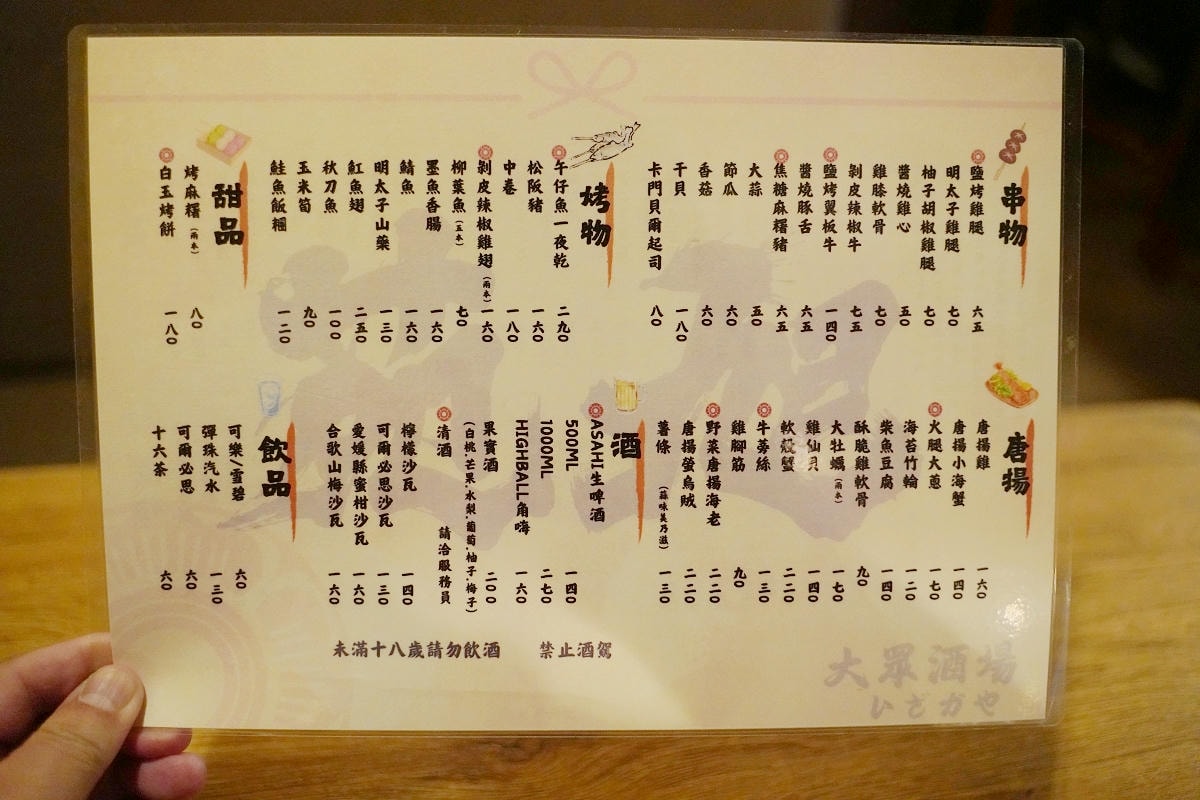 串物
鹽烤雞腿 六五
明太子雞腿 七〇
柚子胡椒雞腿 七〇
醬燒雞心 五〇
雞膝軟骨 七〇
剝皮辣椒牛 七五
鹽烤翼板牛 一四〇
醬燒豚舌 六五
焦糖麻糬豬 六五
大蒜 五〇
節瓜 六〇
香菇 六〇
干貝 一八〇
卡門貝爾起司 八〇
烤物
午仔魚一夜乾 二九〇
松阪豬 一六〇
中卷 一八〇
剝皮辣椒雞翅(兩本) 一六〇
柳葉魚(五本) 七〇
墨魚香腸 一六〇
鯖魚 一六〇
明太子山藥 一三〇
魟魚翅 二五〇
秋刀魚 一〇〇
玉米筍 九〇
鮭魚飯糰 一二〇
甜品
烤麻糬(兩本) 八〇
白玉烤餅 一八〇
唐揚
唐揚雞 一六〇
唐揚小海蟹 一四〇
火腿大蔥 一七〇
海苔竹輪 一二〇
柴魚豆腐 一四〇
酥脆雞軟骨 九〇
大牡蠣(兩本) 一七〇
雞仙貝 一四〇
軟殼蟹 二二〇
牛蒡絲 一三〇
雞腳筋 九〇
野菜唐揚海老 二二〇
唐揚螢烏賊 二二〇
薯條(蒜味美乃滋) 一三〇
酒
ASAHI生啤酒
500ML 一四〇
1000ML 二七〇
HIGHBALL角嗨 一六〇
果實酒 二〇〇
(白桃.芒果.水梨.葡萄.柚子.梅子)
清酒 請洽服務員
檸檬沙瓦 一四〇
可爾必思沙瓦 一三〇
愛媛縣蜜柑沙瓦 一六〇
合歌山梅沙瓦 一六〇
飲品
可樂/雪碧 六〇
彈珠汽水 一三〇
可爾必思 六〇
十六茶 六〇
未滿十八歲請勿飲酒 禁止酒駕
大眾酒場
いざかや